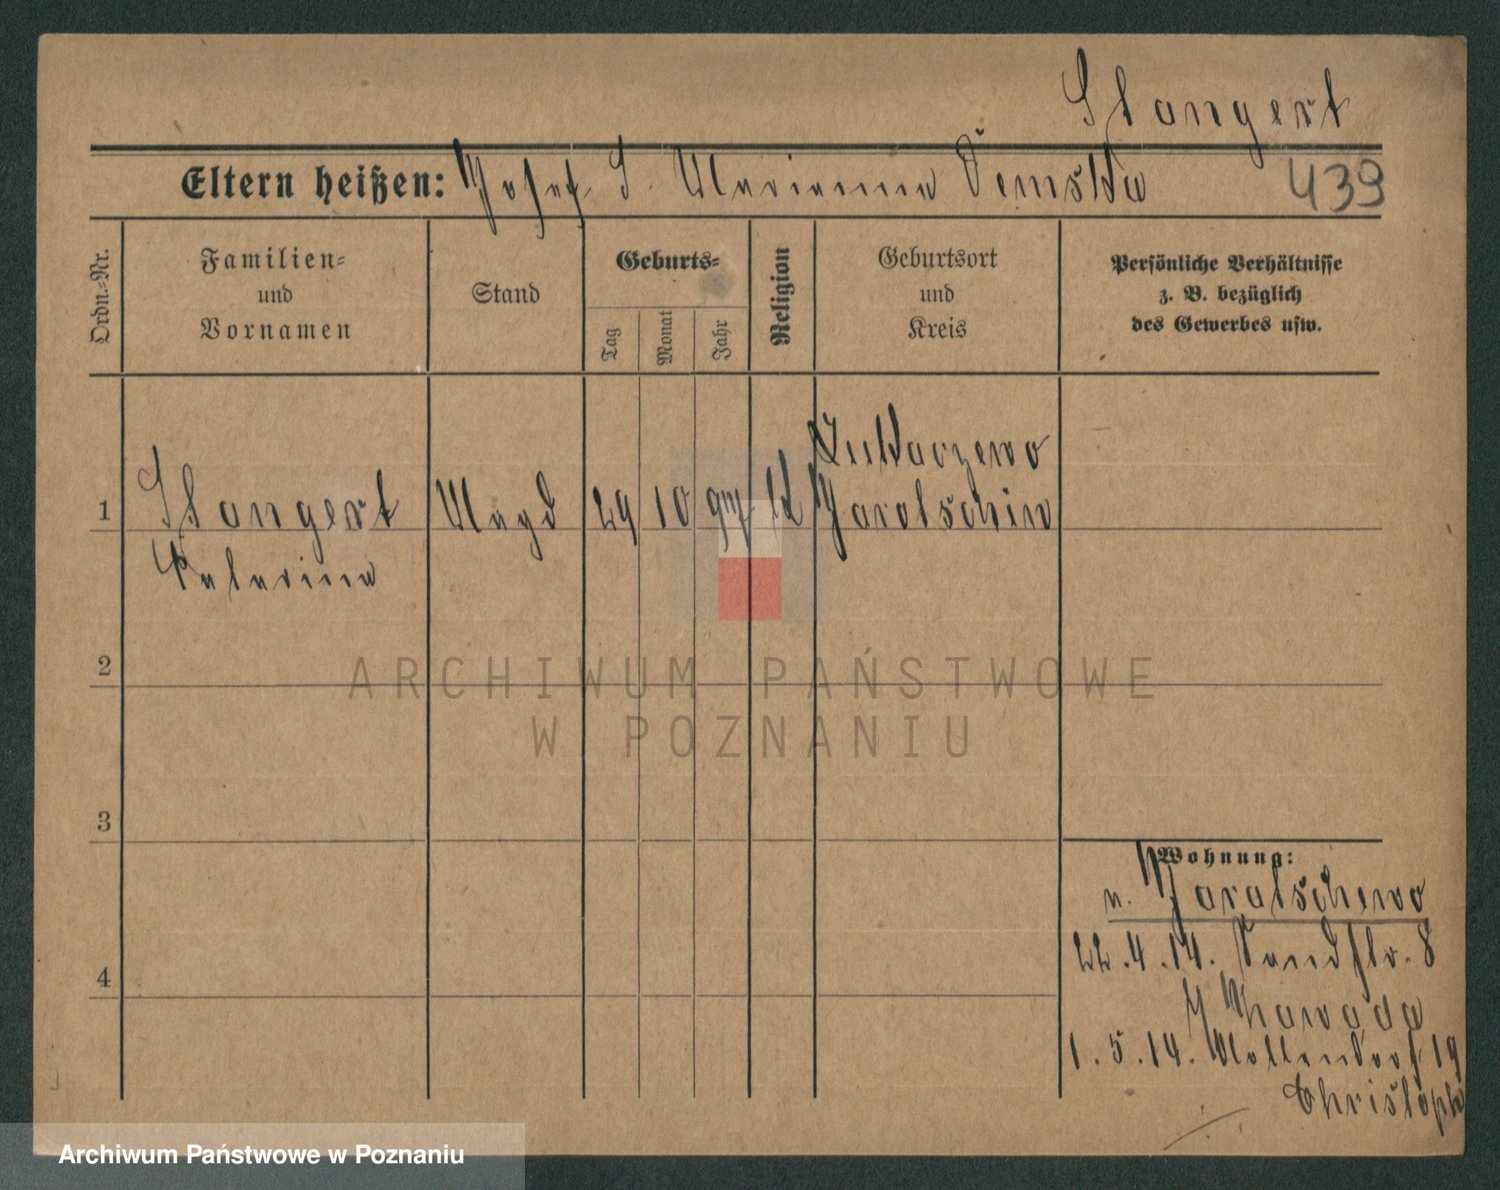 Stangert
439
Eltern heißen: Josef S. Marianna Demska
Ordn.-Nr.
Familien-
und
Vornamen
Stand
Geburts-
Tag
Monat
Jahr
Religion
Geburtsort
und
Kreis
Persönliche Verhältnisse
z. B. bezüglich
des Gewerbes usw.
Lukaczewo
1 Stangert Magd 29 10 97 k Jarotschin
Katarina
2
3
4
Wohnung:
n. Jarotschewo
22.4.14. Sandstr. 8
Zawada
1.5.14. 19
Christoph
ARCHIWUM PAŃSTWOWE
W POZNANIU
Archiwum Państwowe w Poznaniu